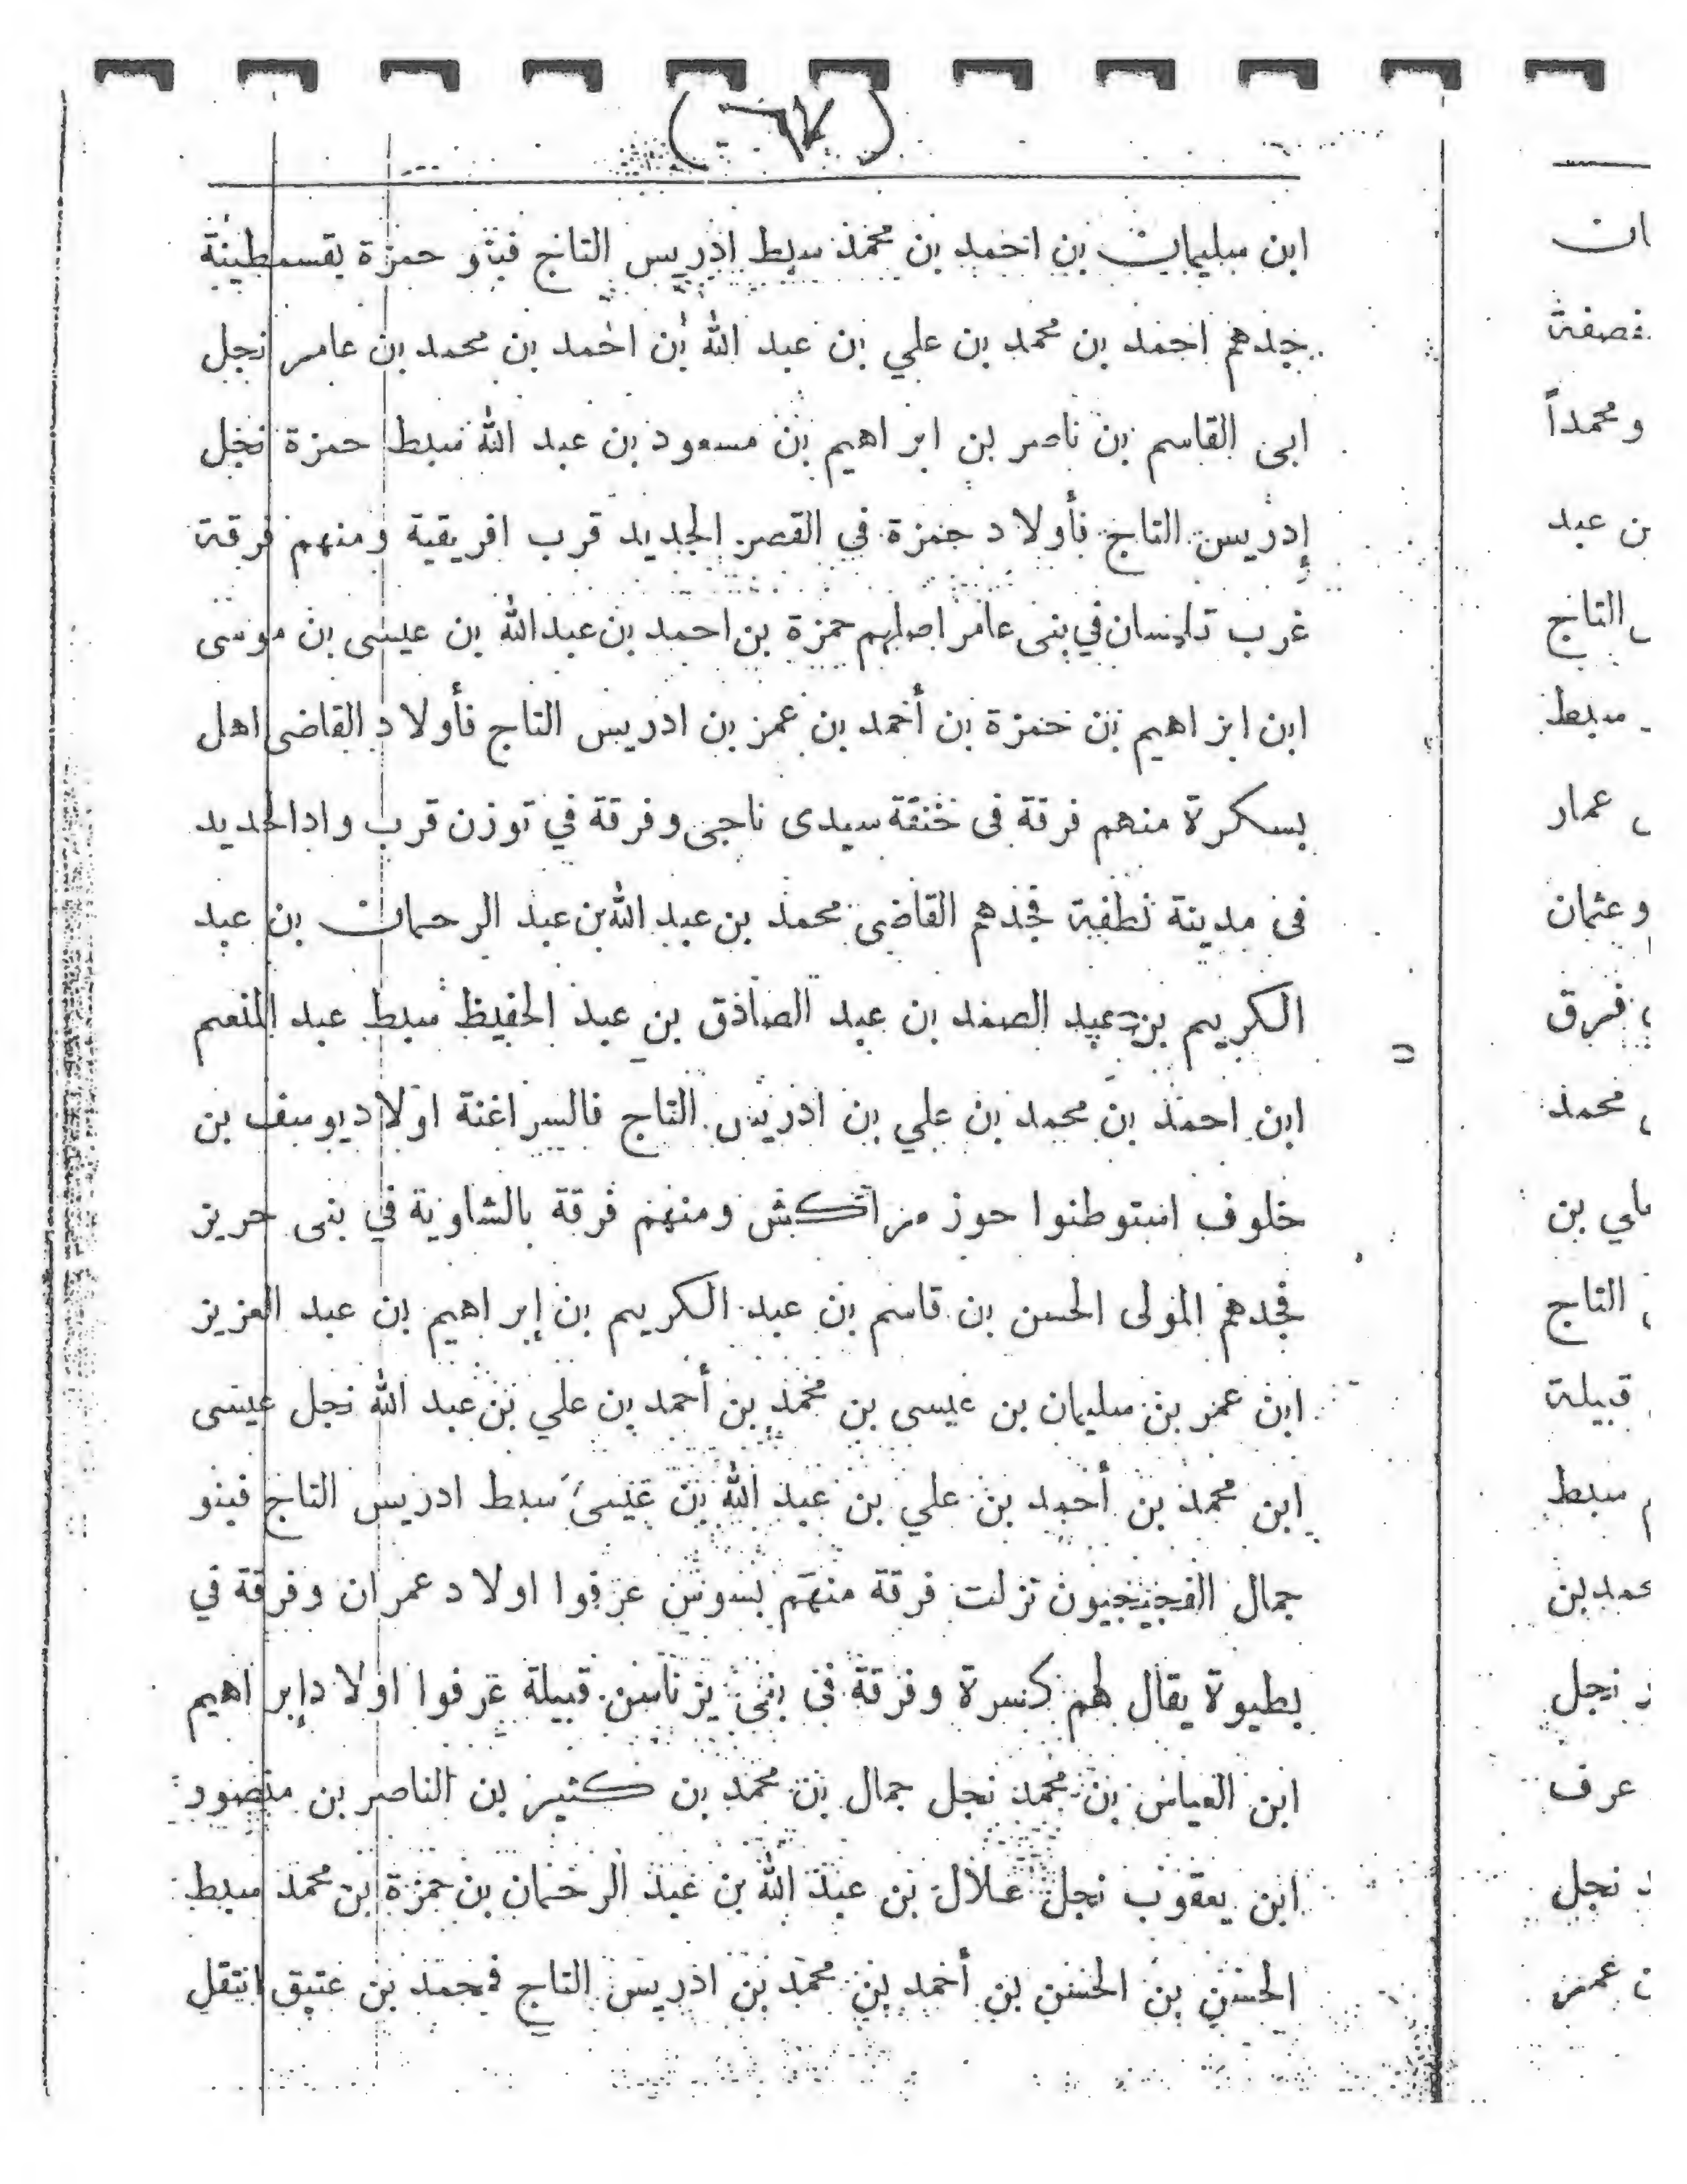 (٦٧)
ابن سليمان بن احمد بن محمد سبط ادريس التاج فبنو حمزة بقسمطينة
جدهم احمد بن محمد بن علي بن عبد الله بن احمد بن محمد بن عامر نجل
ابى القاسم بن ناصر بن ابراهيم بن مسعود بن عبد الله سبط حمزة نجل
إدريس التاج فأولاد حمزة فى القصر الجديد قرب افريقية ومنهم فرقة
غرب تلمسان في بنى عامر اصلهم حمزة بن احمد بن عبدالله بن عيسى بن موسى
ابن ابراهيم بن حمزة بن أحمد بن عمر بن ادريس التاج فأولاد القاضى اهل
بسكرة منهم فرقة فى خنقة سيدى ناجى وفرقة في توزن قرب واد الحديد
فى مدينة نطفة فجدهم القاضى محمد بن عبد الله بن عبد الرحمان بن عبد
الكريم بن عبد الصمد بن عبد الصادق بن عبد الحفيظ سبط عبد المنعم
ابن احمد بن محمد بن علي بن ادريس التاج فالسراغنة اولاد يوسف بن
خلوف استوطنوا حوز مراكش ومنهم فرقة بالشاوية في بنى حريز
فجدهم المولى الحسن بن قاسم بن عبد الكريم بن إبراهيم بن عبد العزيز
ابن عمر بن سليمان بن عيسى بن محمد بن أحمد بن علي بن عبد الله نجل عيسى
ابن محمد بن أحمد بن علي بن عبد الله بن عيسى سبط ادريس التاج فبنو
جمال الفجيجيون نزلت فرقة منهم بسوس عرفوا اولاد عمران وفرقة في
بطيوة يقال لهم كسرة وفرقة فى بنى يزناسن قبيلة عرفوا اولاد إبراهيم
ابن العباس بن محمد نجل جمال بن محمد بن كثير بن الناصر بن منصور
ابن يعقوب نجل علال بن عبد الله بن عبد الرحمان بن حمزة بن محمد سبط
الحسن بن الحسن بن أحمد بن محمد بن ادريس التاج فمحمد بن عتيق انتقل
ان
قصفة
ومحمداً
ن عبد
التاج
سبط
عمار
وعثمان
فرق
محمد
لي بن
التاج
قبيلة
سبط
حمد بن
نجل
عرف
نجل
عمر